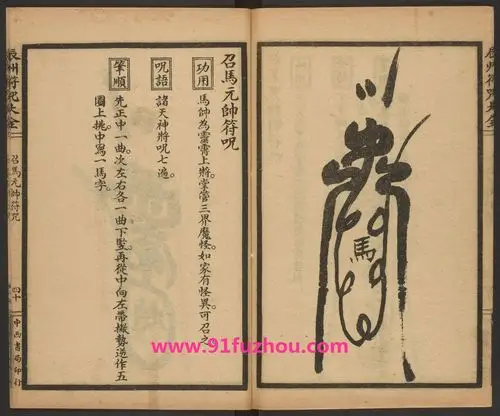 召馬元帥符呪
功用
馬帥為靈霄上將。掌管三界魔怪。如家有怪異。可召之
呪語
諸天神將呪七遍。
筆順
先正中一曲。次左右各一曲下豎。再從中向左帶撇勢造作五
圈上挑。中寫一馬字。
辰州符咒大全
召馬元帥符咒
四十
中西書局印行
馬
www.91fuzhou.com